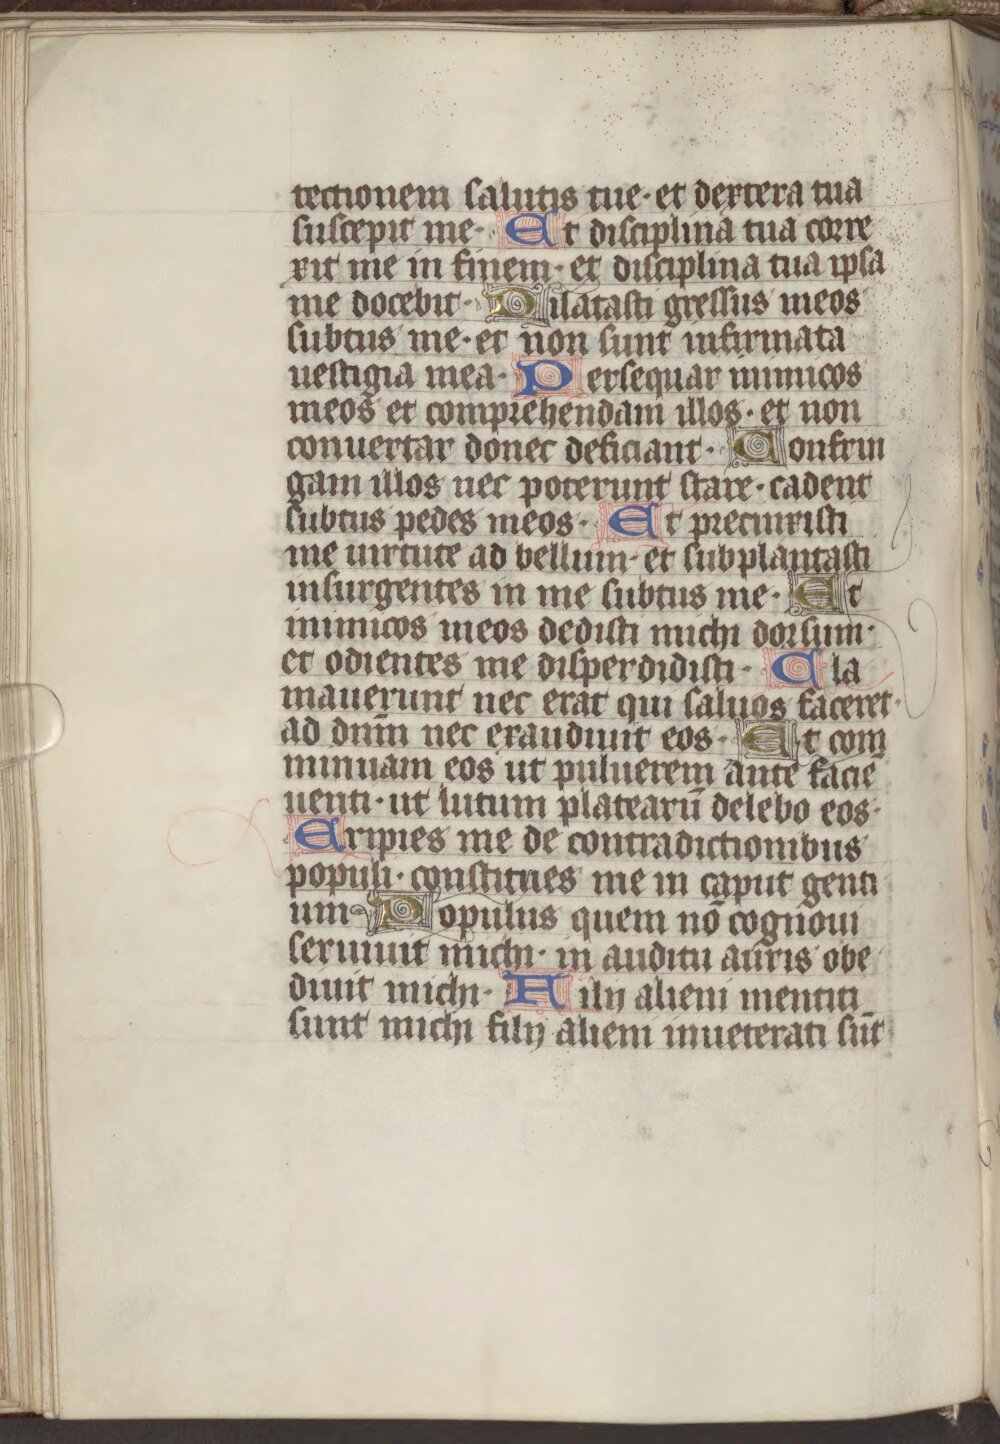 tectionem salutis tue · et dextera tua
suscepit me · Et disciplina tua corre
xit me in finem · et disciplina tua ipsa
me docebit · Dilatasti gressus meos
subtus me · et non sunt infirmata
uestigia mea · Persequar inimicos
meos et comprehendam illos · et non
conuertar donec deficiant · Confrin
gam illos nec poterunt stare · cadent
subtus pedes meos · Et precinxisti
me uirtute ad bellum · et subplantasti
insurgentes in me subtus me · Et
inimicos meos dedisti michi dorsum ·
et odientes me disperdidisti · Cla
mauerunt nec erat qui saluos faceret ·
ad dn̄m nec exaudiuit eos · Et com
minuam eos ut puluerem ante faciē
uenti · ut lutum platearū delebo eos ·
Eripies me de contradictionibus
populi · constitues me in caput genti
um · Populus quem nō cognoui
seruiuit michi · in auditu auris obe
diuit michi · Filij alieni mentiti
sunt michi filij alieni inueterati sūt